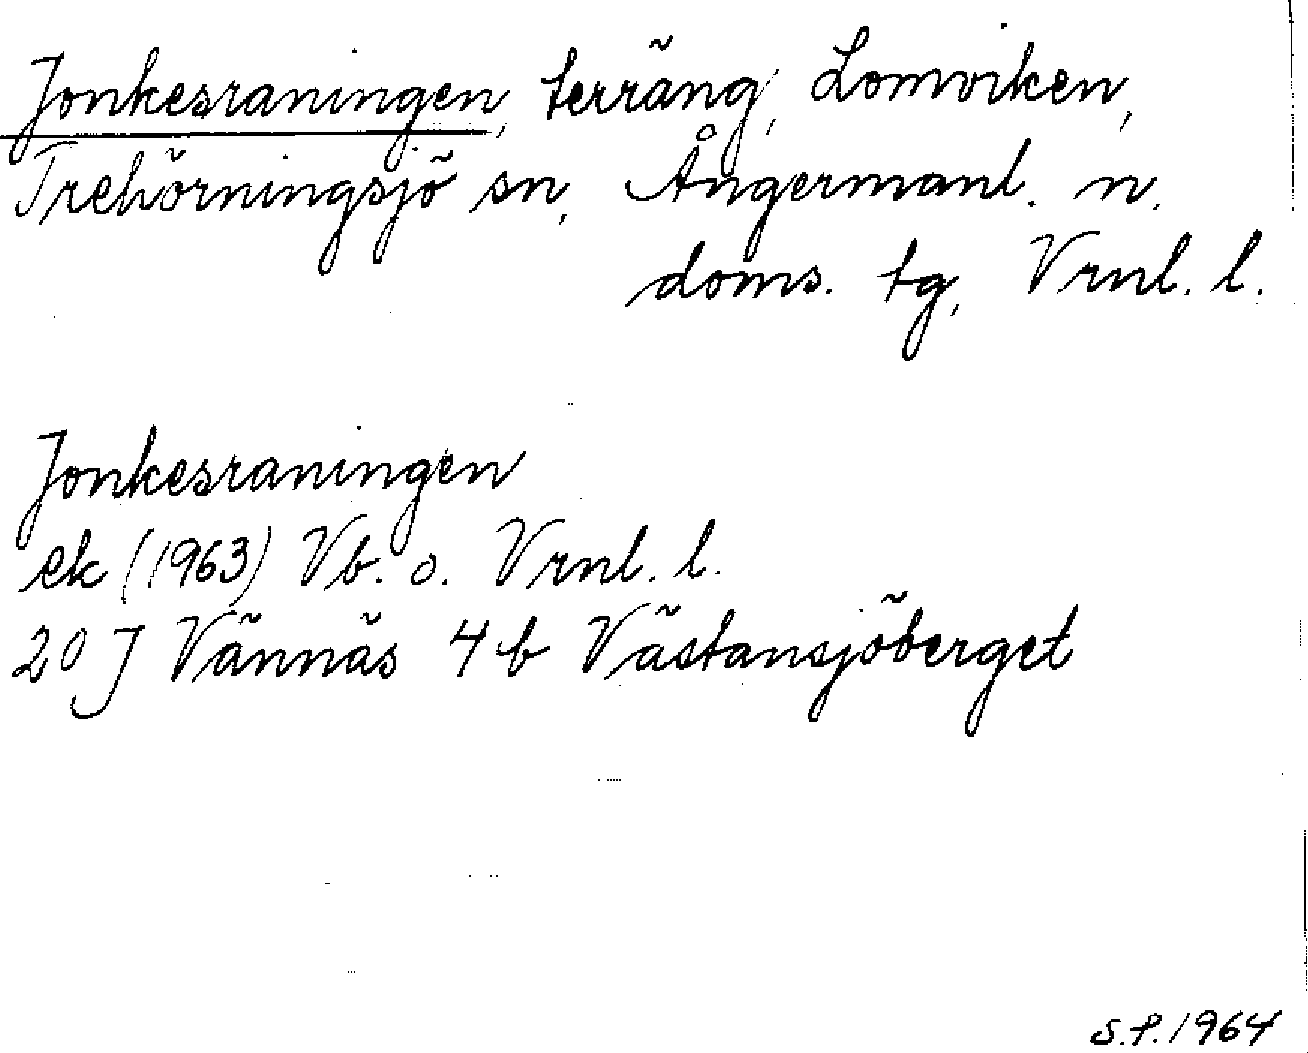 Jonkesraningen, terräng, Lomviken,
Trehörningsjö sn, Ångermanl. n.
doms. tg, Vrnl. l.
Jonkesraningen
ek (1963) Vb. o. Vrnl. l.
20 J Vännäs 4 b Västansjöberget
S.P. 1964